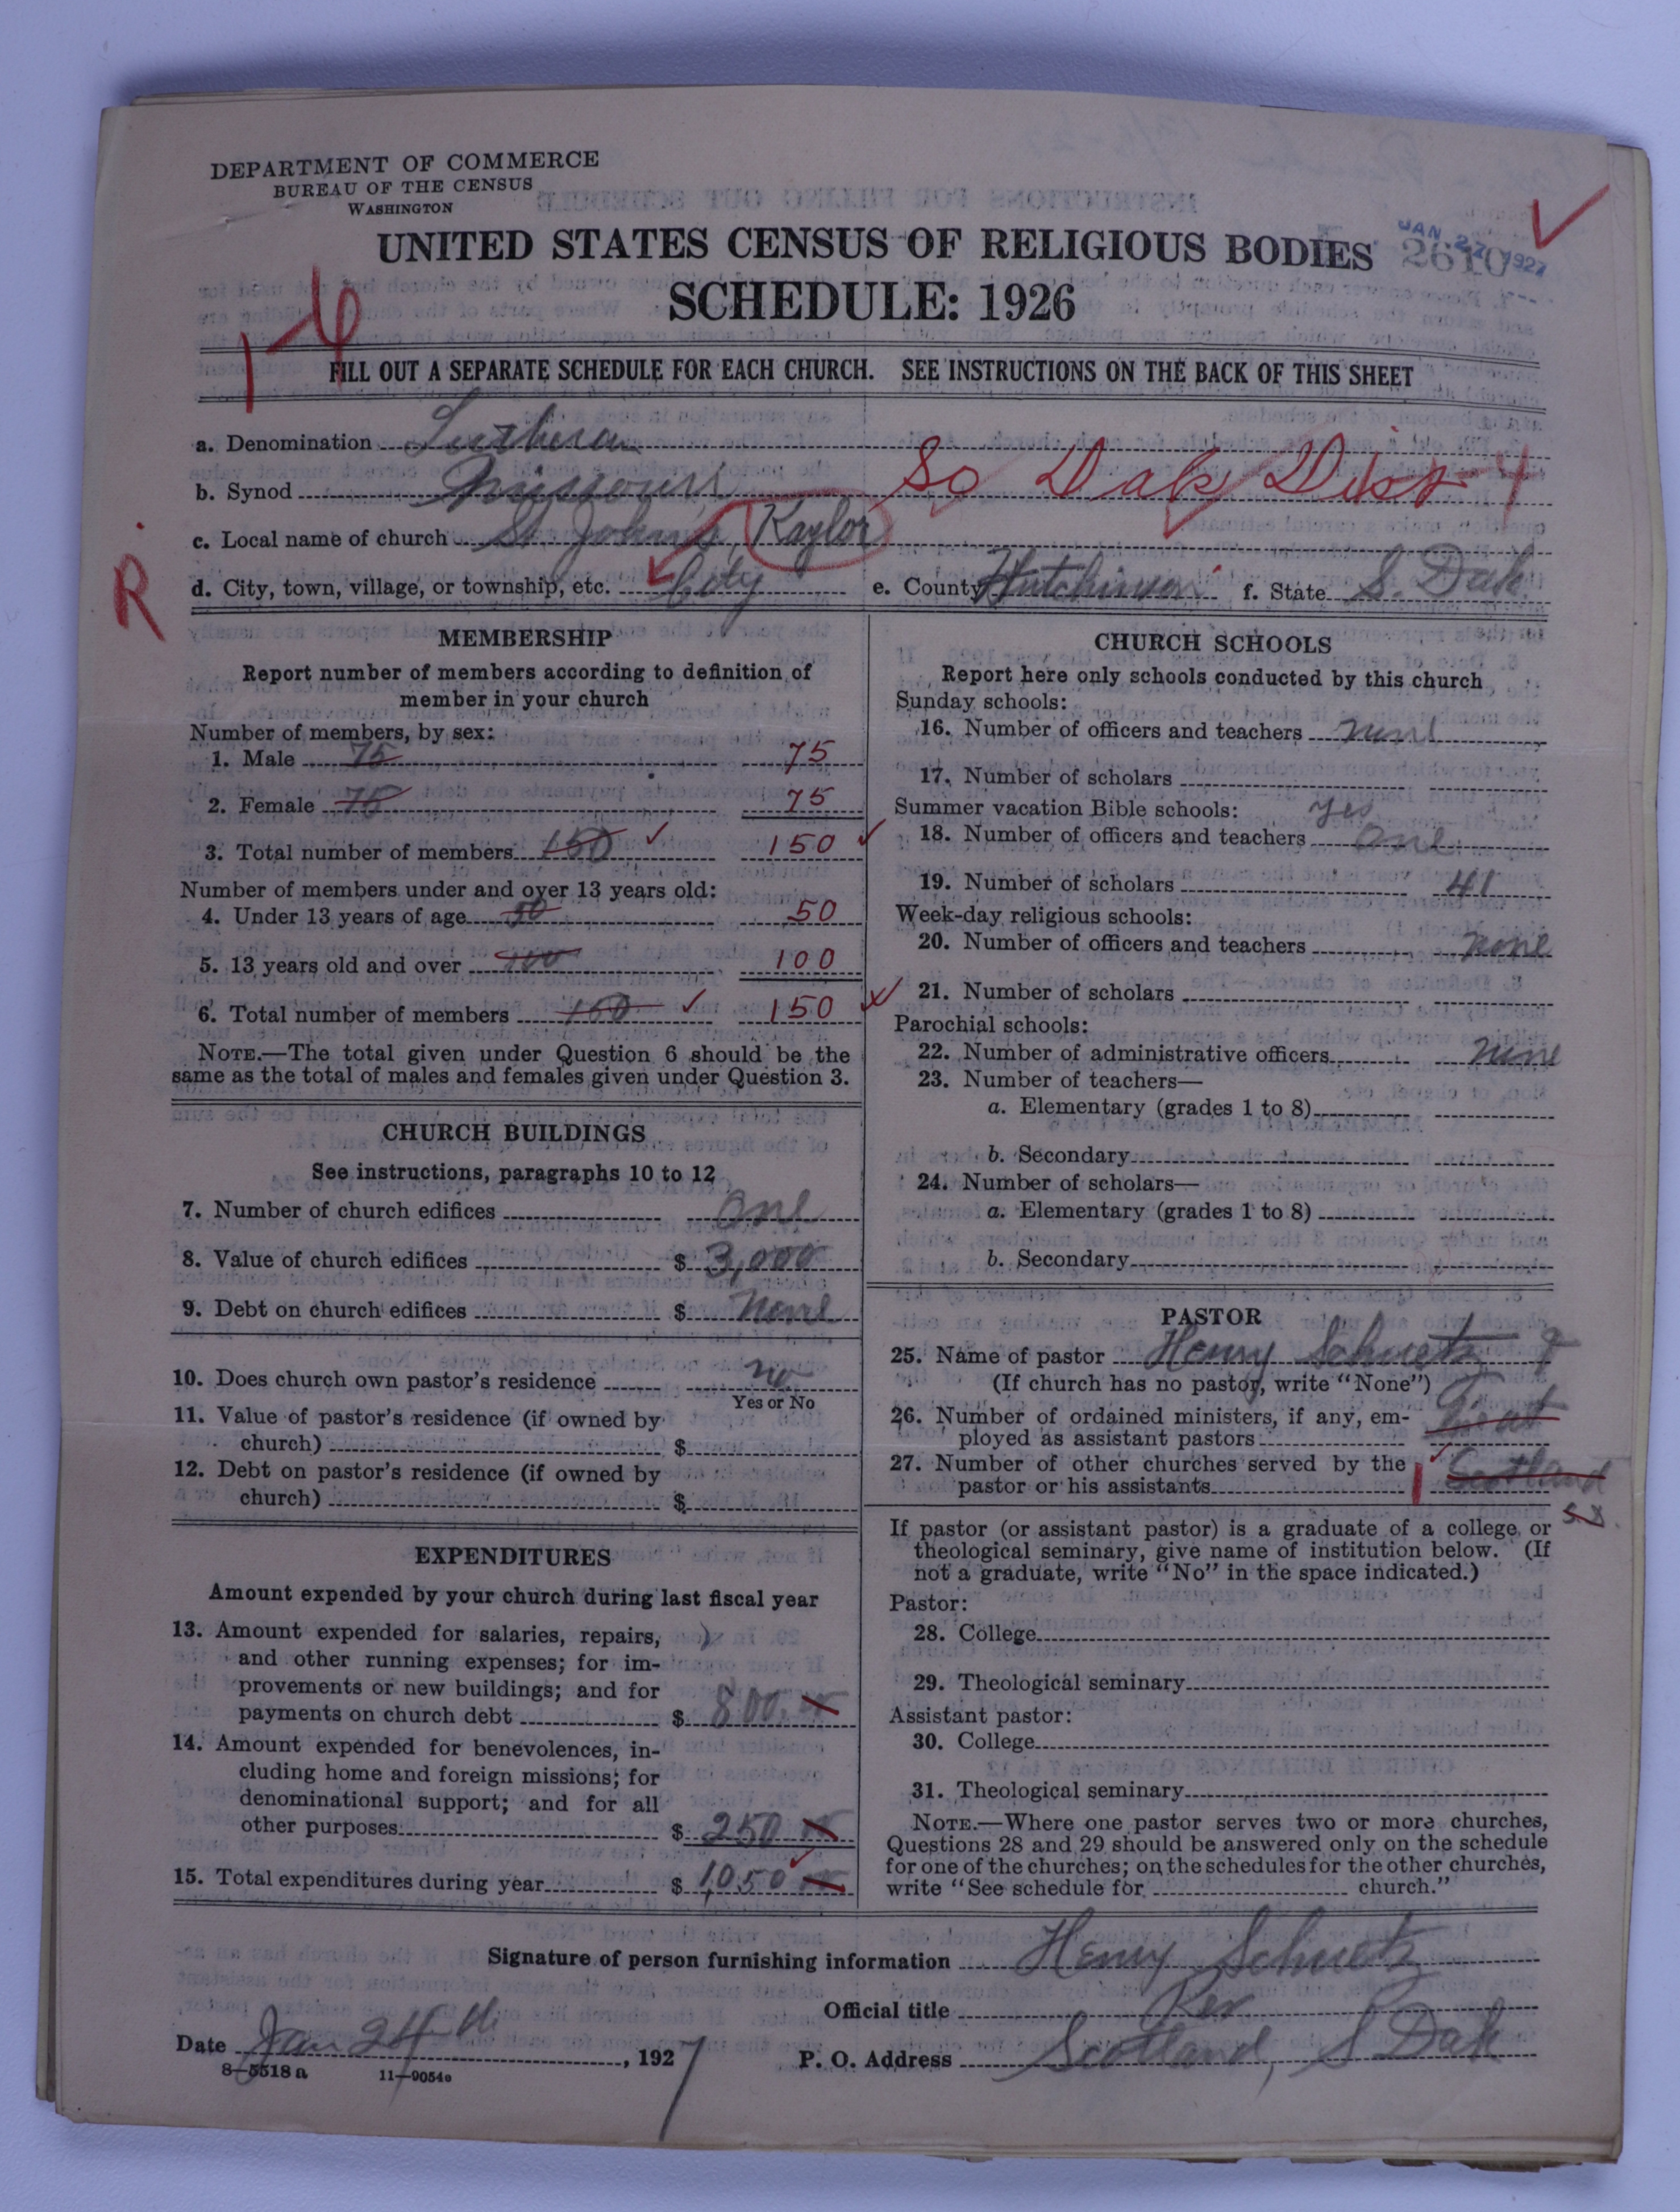 DEPARTMENT OF COMMERCE
BUREAU OF THE CENSUS
WASHINGTON
UNITED STATES CENSUS OF RELIGIOUS BODIES
JAN 27 1927
2610
SCHEDULE: 1926
1-6
FILL OUT A SEPARATE SCHEDULE FOR EACH CHURCH. SEE INSTRUCTIONS ON THE BACK OF THIS SHEET
a. Denomination Lutheran
b. Synod Missouri So Dak Dist-4
c. Local name of church St. John's, Kaylor
R
d. City, town, village, or township, etc. City e. County Hutchinson f. State S. Dak.
MEMBERSHIP
Report number of members according to definition of
member in your church
Number of members, by sex:
1. Male 75 75
2. Female 75 75
3. Total number of members 150 150
Number of members under and over 13 years old:
4. Under 13 years of age 50 50
5. 13 years old and over 100 100
6. Total number of members 150 150
NOTE.—The total given under Question 6 should be the
same as the total of males and females given under Question 3.
CHURCH BUILDINGS
See instructions, paragraphs 10 to 12
7. Number of church edifices One
8. Value of church edifices $ 3,000
9. Debt on church edifices $ None
10. Does church own pastor's residence no
Yes or No
11. Value of pastor's residence (if owned by
church) $
12. Debt on pastor's residence (if owned by
church) $
EXPENDITURES
Amount expended by your church during last fiscal year
13. Amount expended for salaries, repairs,
and other running expenses; for im-
provements or new buildings; and for
payments on church debt $ 800.
14. Amount expended for benevolences, in-
cluding home and foreign missions; for
denominational support; and for all
other purposes $ 250
15. Total expenditures during year $ 1,050
CHURCH SCHOOLS
Report here only schools conducted by this church
Sunday schools:
16. Number of officers and teachers none
17. Number of scholars
Summer vacation Bible schools: yes
18. Number of officers and teachers One
19. Number of scholars 41
Week-day religious schools:
20. Number of officers and teachers none
21. Number of scholars
Parochial schools:
22. Number of administrative officers none
23. Number of teachers—
a. Elementary (grades 1 to 8)
b. Secondary
24. Number of scholars—
a. Elementary (grades 1 to 8)
b. Secondary
PASTOR
25. Name of pastor Henry Schuetz
(If church has no pastor, write "None")
26. Number of ordained ministers, if any, em-
ployed as assistant pastors
27. Number of other churches served by the
pastor or his assistants 1 Scotland
S.D.
If pastor (or assistant pastor) is a graduate of a college or
theological seminary, give name of institution below. (If
not a graduate, write "No" in the space indicated.)
Pastor:
28. College
29. Theological seminary
Assistant pastor:
30. College
31. Theological seminary
NOTE.—Where one pastor serves two or more churches,
Questions 28 and 29 should be answered only on the schedule
for one of the churches; on the schedules for the other churches,
write "See schedule for church."
Signature of person furnishing information Henry Schuetz
Official title Rev
Date Jan 24th, 1927
P. O. Address Scotland, S Dak
8-5518 a 11-9054a